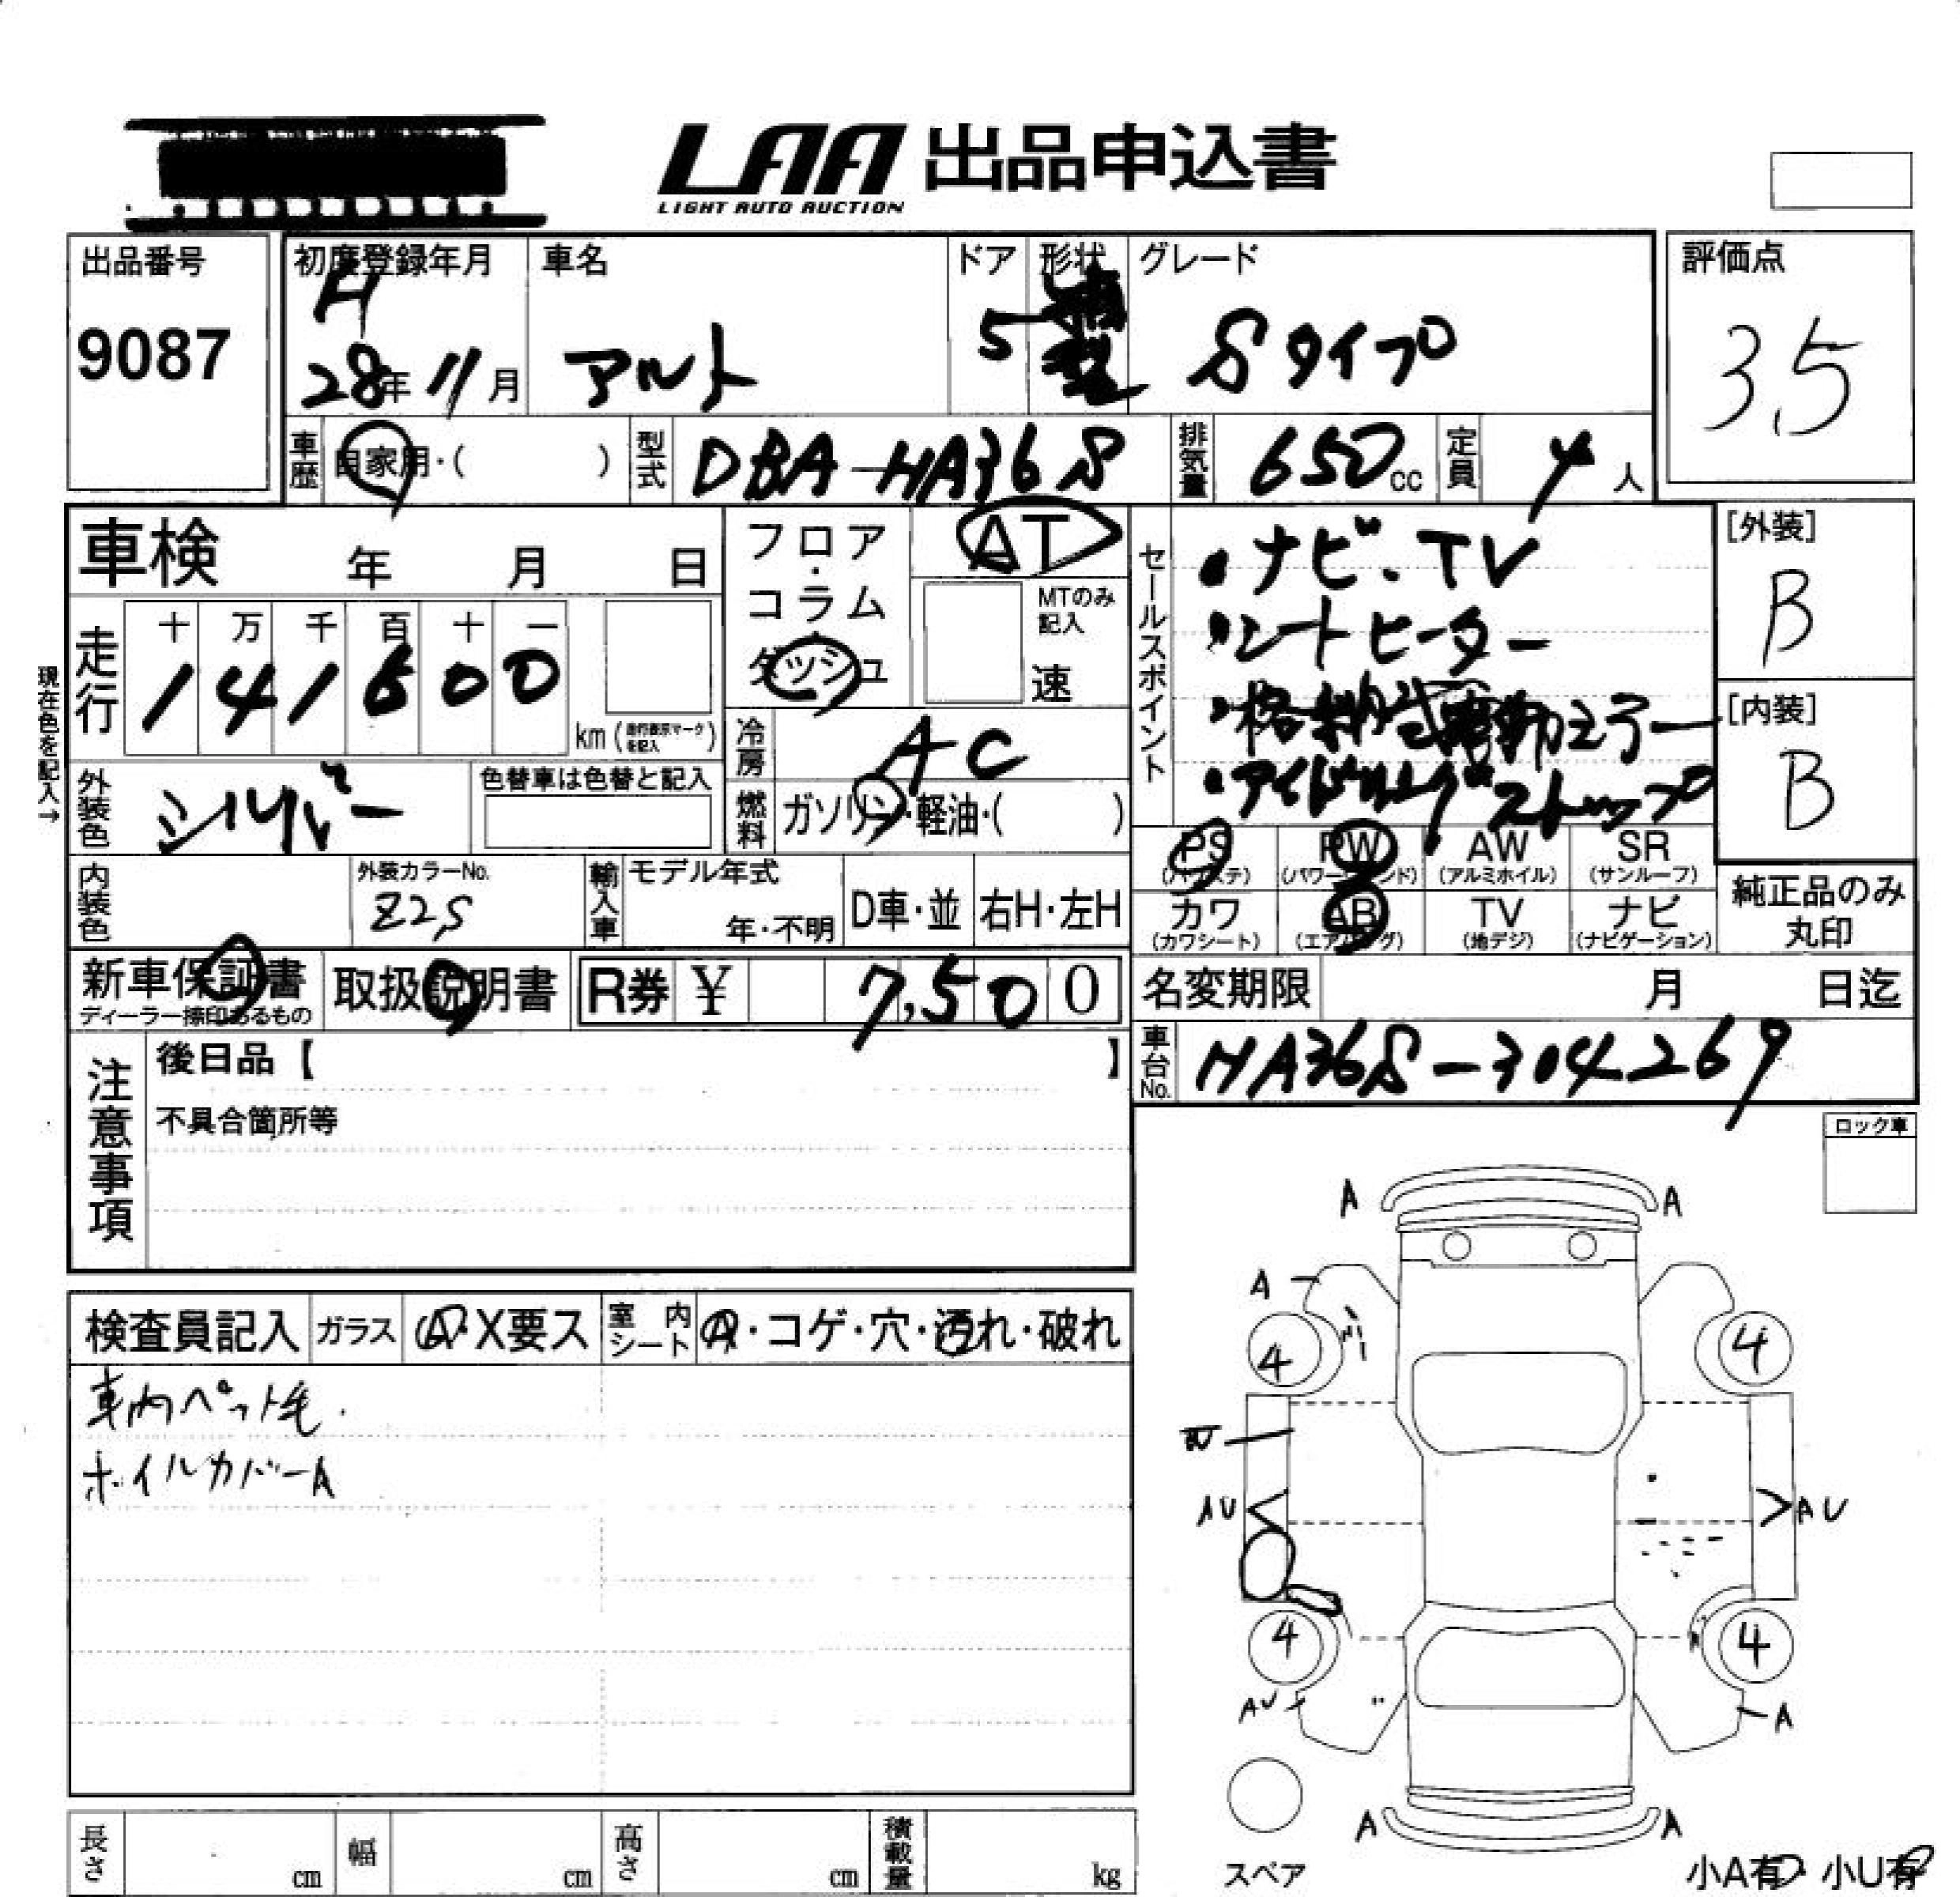 LAA 出品申込書
LIGHT AUTO AUCTION
出品番号
9087
初度登録年月
H
28年 11月
車名
アルト
ドア
5
形状
型
グレード
Sタイプ
評価点
3.5
車歴
自家用・( )
型式
DBA-HA36S
排気量
650cc
定員
4人
車検 年 月 日
フロア・コラム
ダッシュ
AT
MTのみ記入
速
セールスポイント
・ナビ・TV
・シートヒーター
・格納式電動ミラー
・アイドリングストップ
[外装]
B
[内装]
B
現在色を記入→
走行
十 万 千 百 十 一
1 4 1 6 0 0
km(走行表示マークを記入)
冷房
AC
外装色
シルバー
色替車は色替と記入
燃料
ガソリン・軽油・( )
PS
(パワステ)
PW
(パワーウインド)
AW
(アルミホイル)
SR
(サンルーフ)
カワ
(カワシート)
AB
(エアバッグ)
TV
(地デジ)
ナビ
(ナビゲーション)
純正品のみ
丸印
内装色
外装カラーNo.
Z2S
輸入車
モデル年式
年・不明
D車・並
右H・左H
新車保証書
ディーラー捺印あるもの
取扱説明書
R券 ¥ 7,500
名変期限 月 日迄
車台No.
HA36S-304269
注意事項
後日品【 】
不具合箇所等
ロック車
検査員記入
ガラス
A・X要ス
室内シート
A・コゲ・穴・汚れ・破れ
車内ペット毛.
ホイルカバーA
A A
A
4 4
AU AU
4 4
AU A
A A
スペア
小A有・小U有
長さ cm
幅 cm
高さ cm
積載量 kg